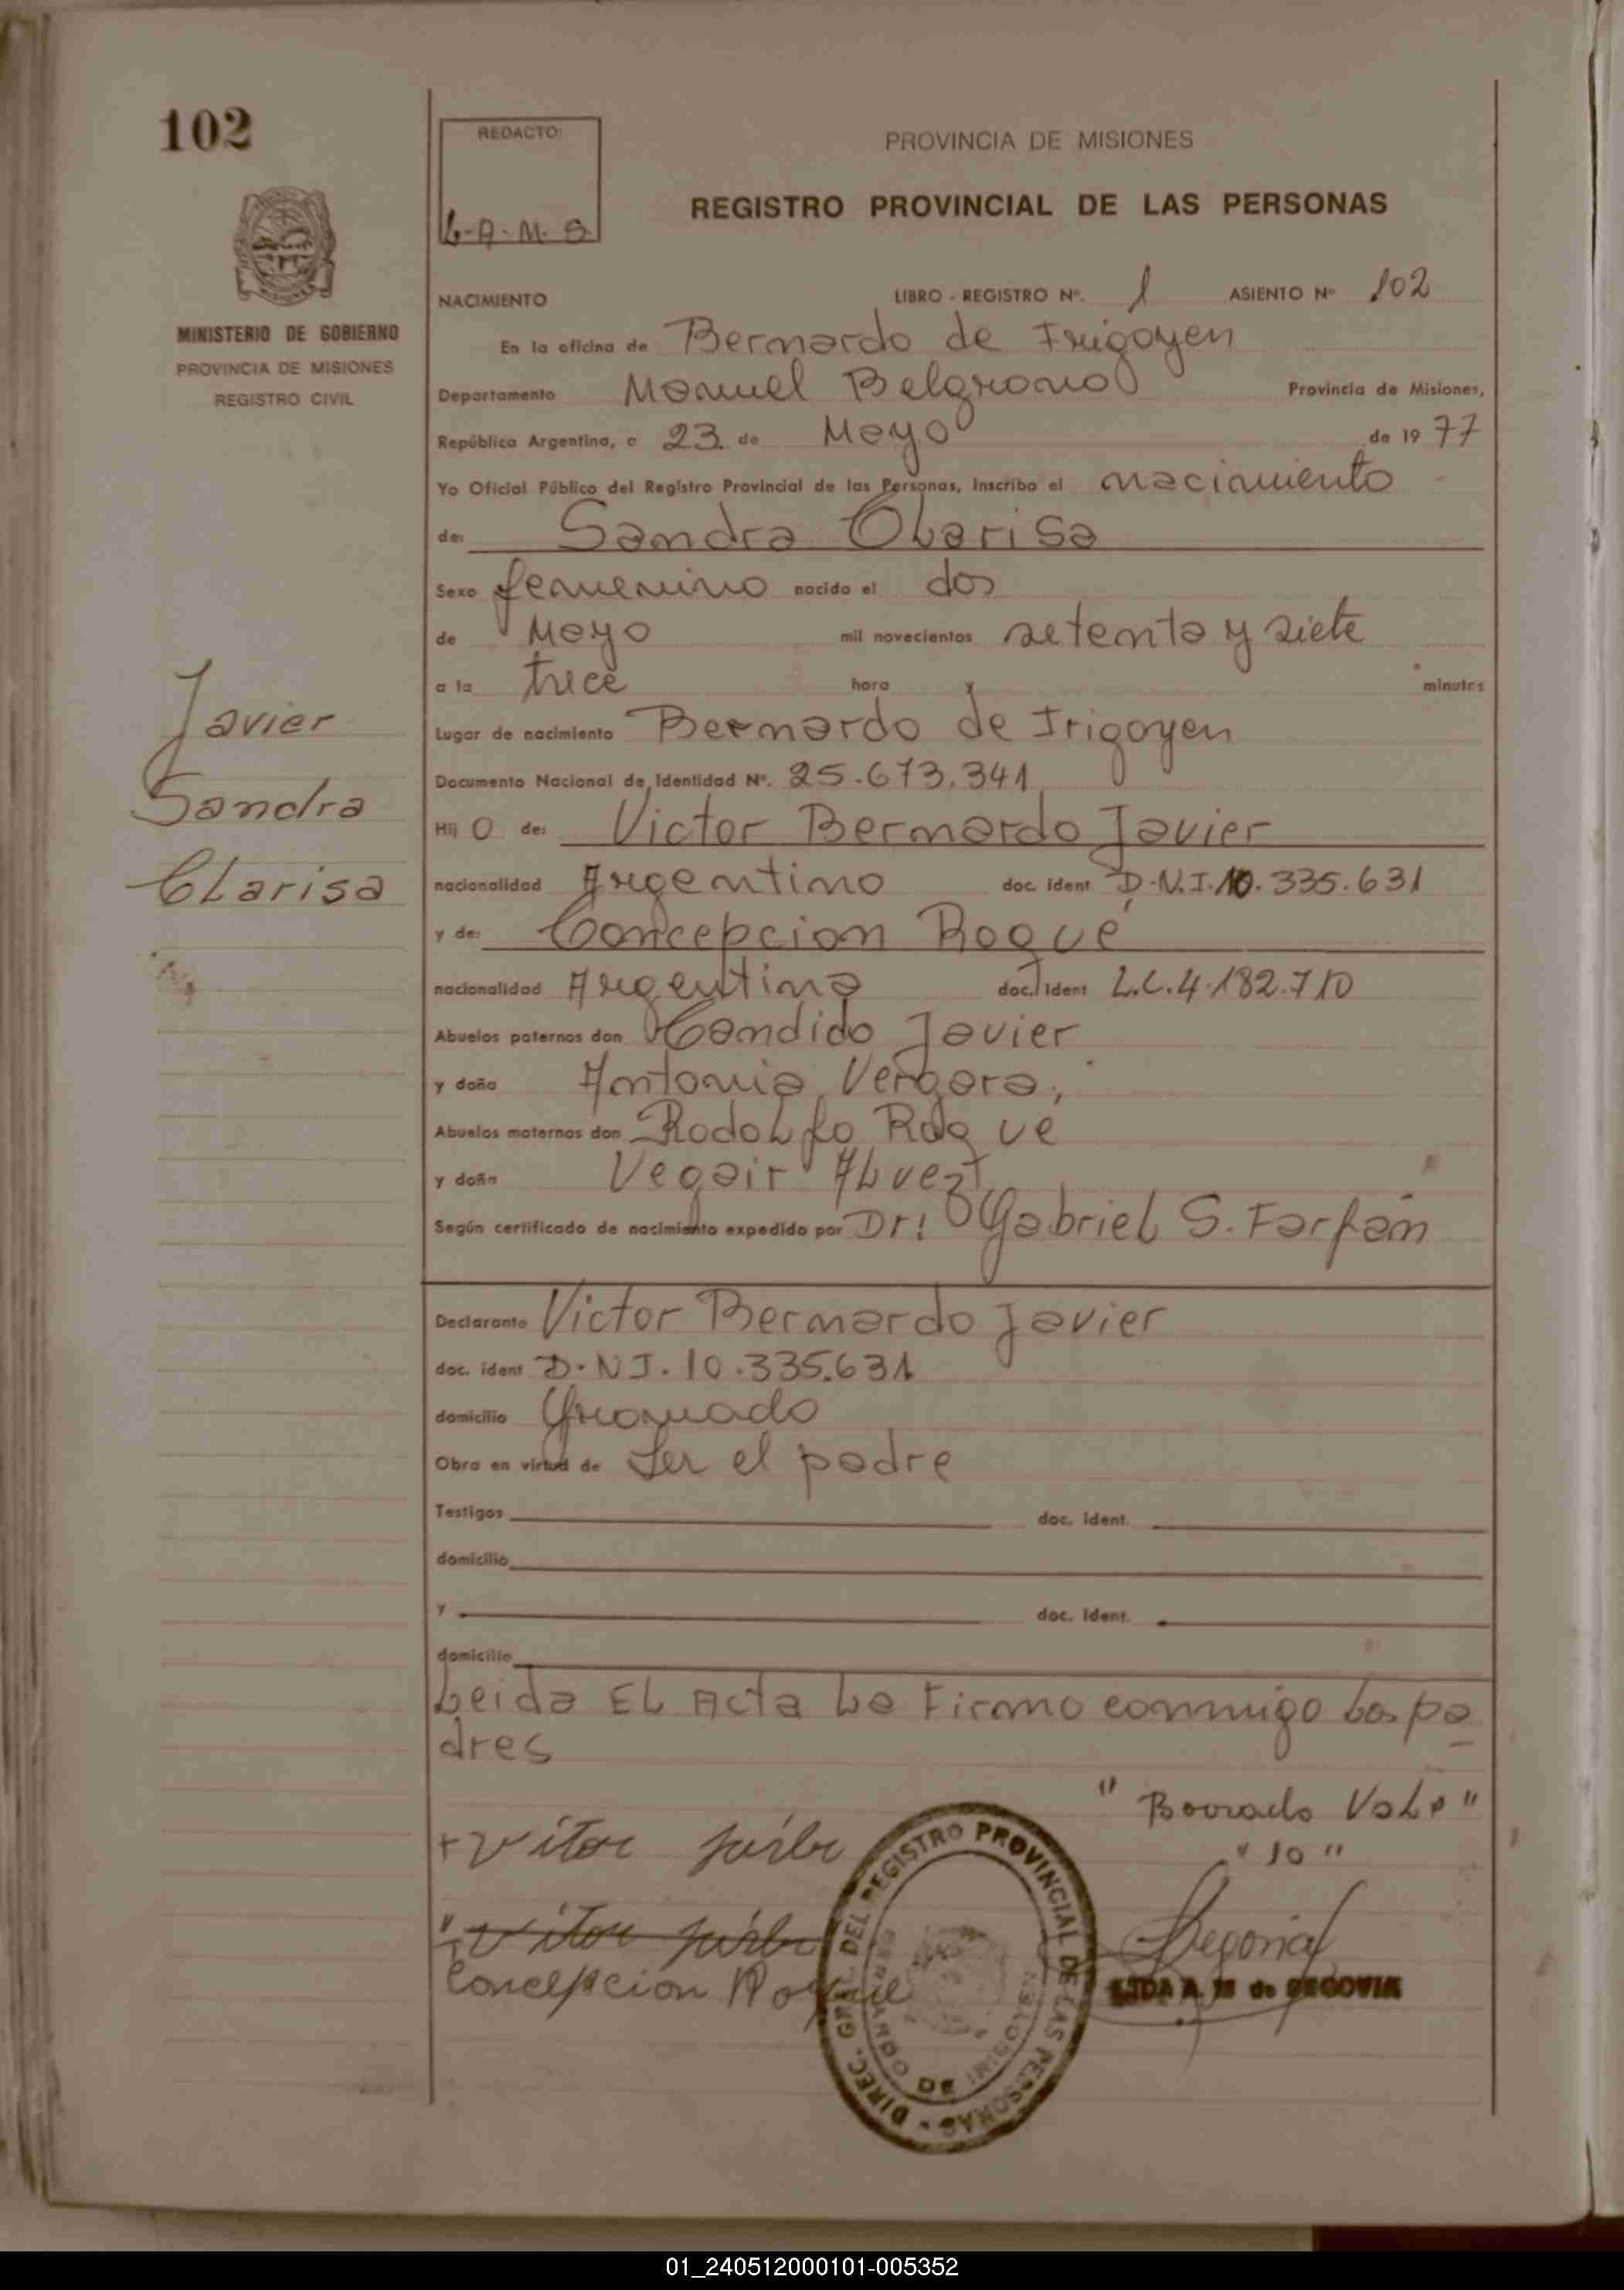 102
REDACTO:
L.A.M.S.
PROVINCIA DE MISIONES
REGISTRO PROVINCIAL DE LAS PERSONAS
MISIONES
MINISTERIO DE GOBIERNO
PROVINCIA DE MISIONES
REGISTRO CIVIL
NACIMIENTO LIBRO - REGISTRO Nº. 1 ASIENTO Nº 102
En la oficina de Bernardo de Irigoyen
Departamento Manuel Belgrano Provincia de Misiones,
República Argentina, a 23. de Mayo de 19 77
Yo Oficial Público del Registro Provincial de las Personas, inscribo el nacimiento
de: Sandra Clarisa
Sexo femenino nacido el dos
de Mayo mil novecientos setenta y siete
a la trece hora y minutos
Lugar de nacimiento Bernardo de Irigoyen
Documento Nacional de Identidad Nº. 25.673.341
Javier
Sandra
Clarisa
Hij O de: Victor Bernardo Javier
nacionalidad Argentino doc. ident D.N.I. 10.335.631
y de: Concepcion Roqué
nacionalidad Argentina doc. ident L.C. 4.182.710
Abuelos paternos don Candido Javier
y doña Antonia Vergara,
Abuelos maternos don Rodolfo Roque
y doña
Según certificado de nacimiento expedido por Dr: Gabriel S. Farfán
Declarante Victor Bernardo Javier
doc. ident D.N.I. 10.335.631
domicilio Gramado
Obra en virtud de Ser el padre
Testigos doc. ident.
domicilio
y doc. ident.
domicilio
Leida EL Acta La Firmo conmigo Los pa
dres
"Borrado Vale"
"10"
+ Vitor
" Vitor
Concepcion Roque
Segovia
LIDA A. M de SEGOVIA
DIREC. GRAL. DEL REGISTRO PROVINCIAL DE LAS PERSONAS
BERNARDO DE IRIGOYEN
01_240512000101-005352